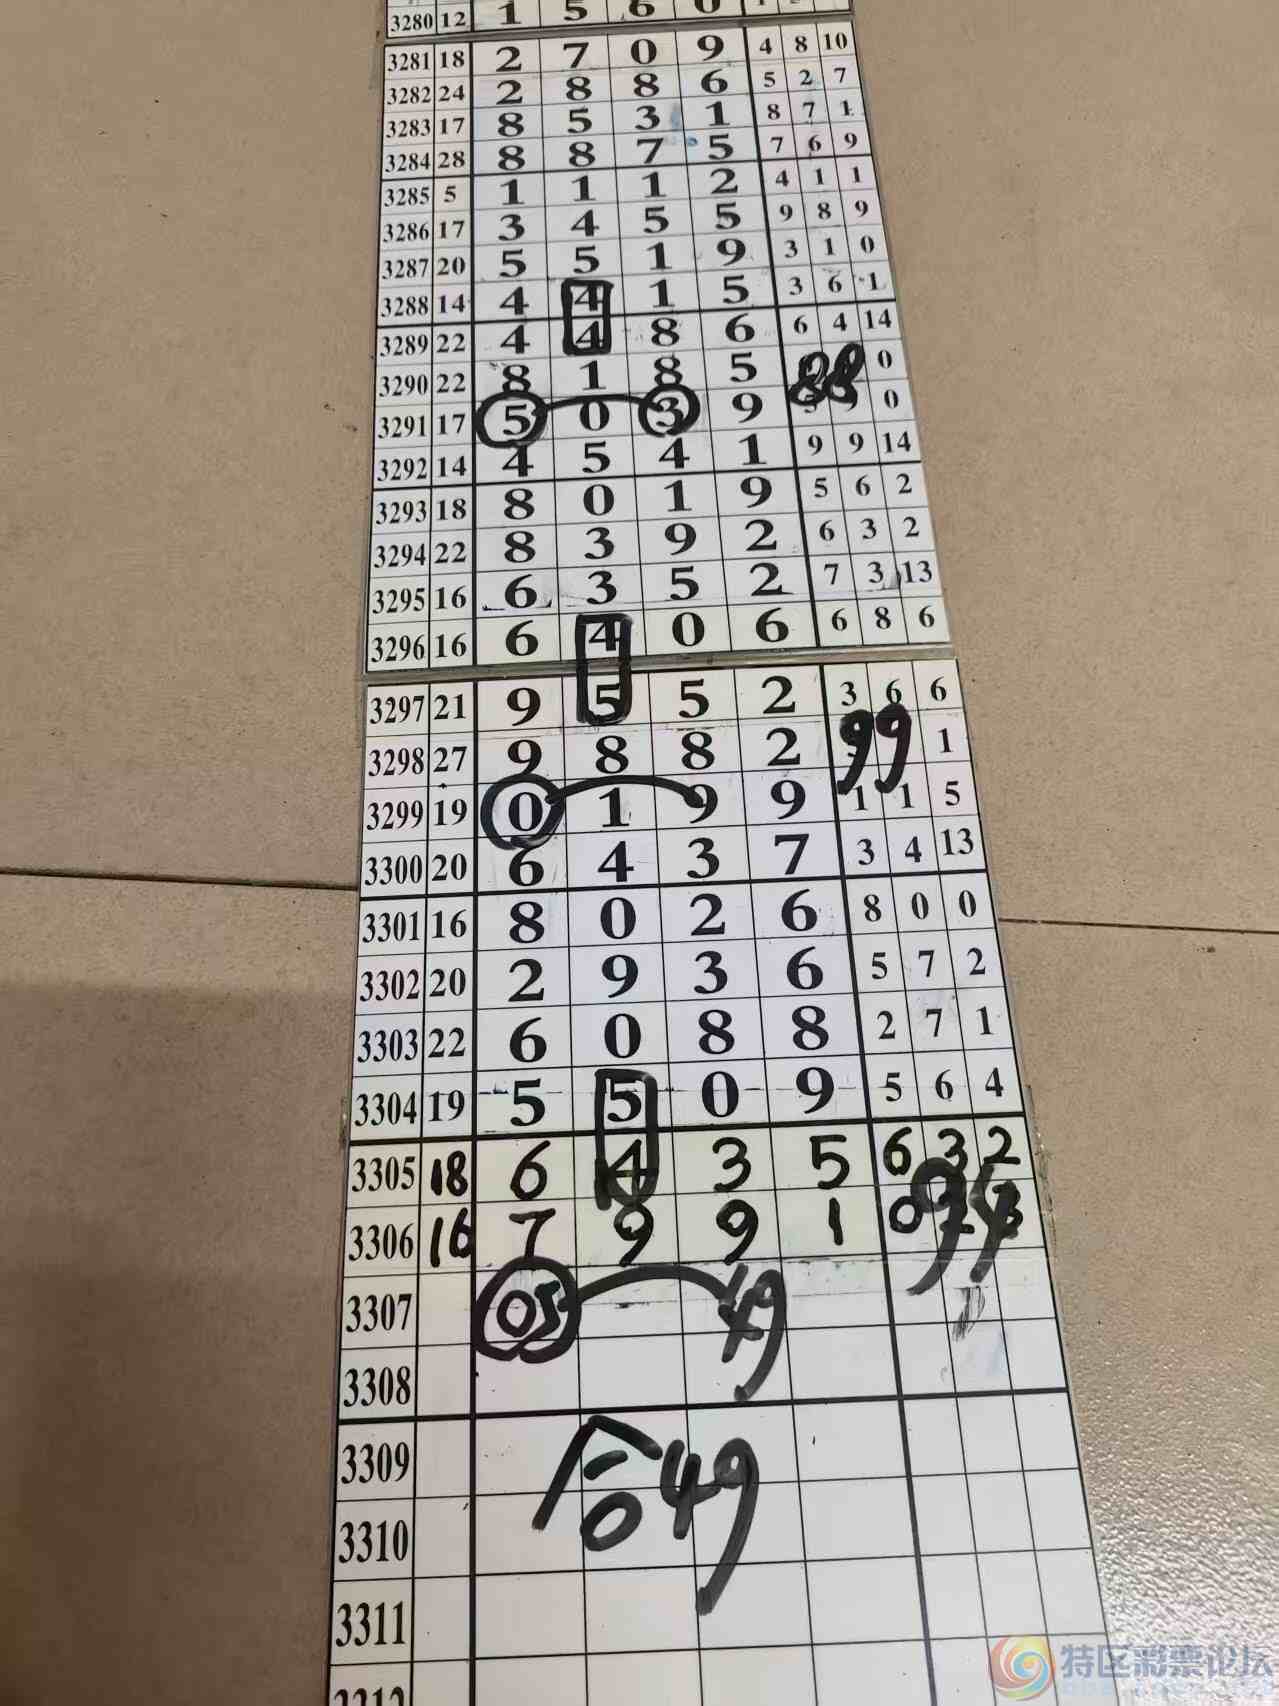 3280 12 1 5 6 0
3281 18 2 7 0 9 4 8 10
3282 24 2 8 8 6 5 2 7
3283 17 8 5 3 1 8 7 1
3284 28 8 8 7 5 7 6 9
3285 5 1 1 1 2 4 1 1
3286 17 3 4 5 5 9 8 9
3287 20 5 5 1 9 3 1 0
3288 14 4 4 1 5 3 6 1
3289 22 4 4 8 6 6 4 14
3290 22 8 1 8 5 88 0
3291 17 5 0 3 9 0
3292 14 4 5 4 1 9 9 14
3293 18 8 0 1 9 5 6 2
3294 22 8 3 9 2 6 3 2
3295 16 6 3 5 2 7 3 13
3296 16 6 4 0 6 6 8 6
3297 21 9 5 5 2 3 6 6
3298 27 9 8 8 2 99 1
3299 19 0 1 9 9 1 1 5
3300 20 6 4 3 7 3 4 13
3301 16 8 0 2 6 8 0 0
3302 20 2 9 3 6 5 7 2
3303 22 6 0 8 8 2 7 1
3304 19 5 5 0 9 5 6 4
3305 18 6 4 3 5 6 3 2
3306 16 7 9 9 1 0 94
3307 05 49
3308
3309 合49
3310
3311
特区彩票论坛